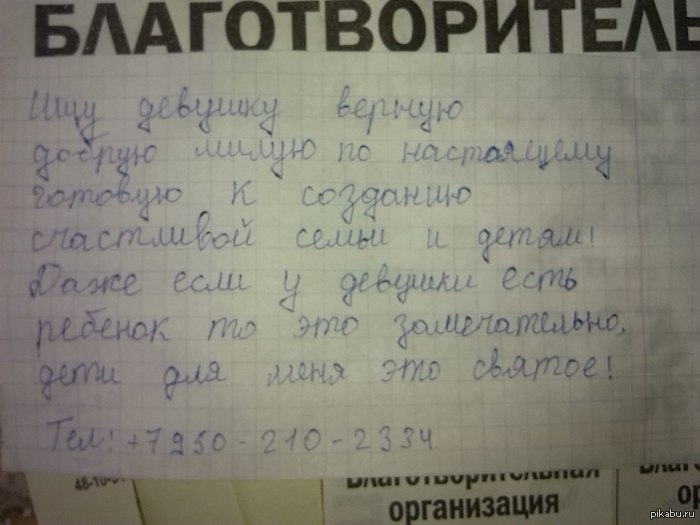 БЛАГОТВОРИТЕЛЬ
Ищу девушку верную
добрую милую по настоящему
готовую к созданию
счастливой семьи и детям!
Даже если у девушки есть
ребенок то это замечательно,
дети для меня это святое!
Тел: +7950-210-2334
48-10-
Благотворительная
организация
pikabu.ru